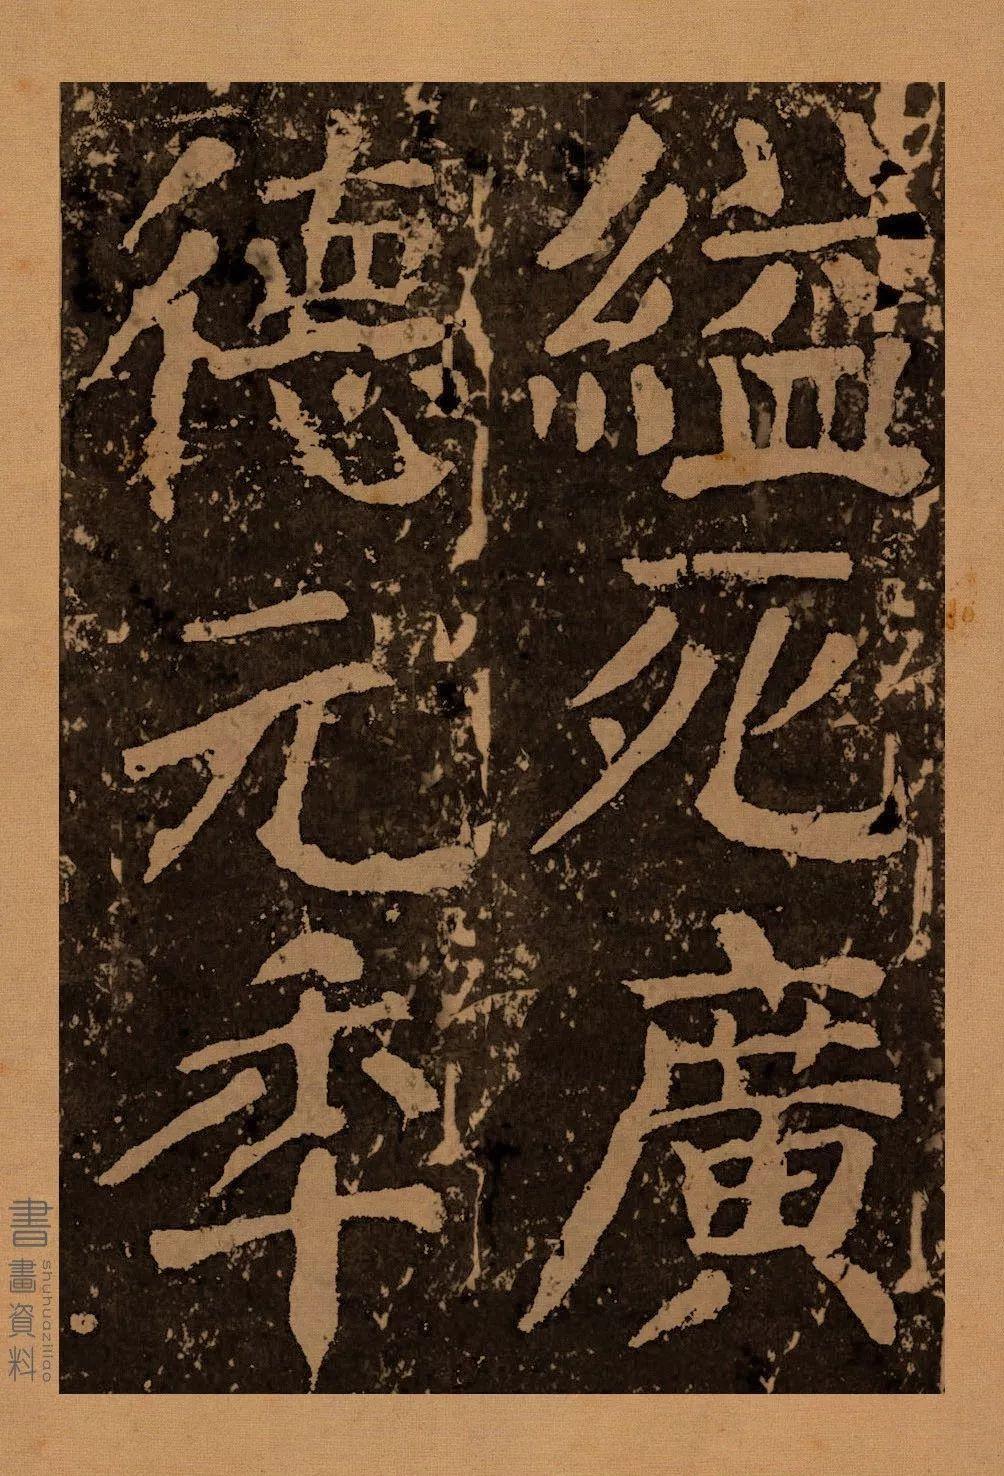 縊死廣
德元秊
書畫資料
shuhuaziliao